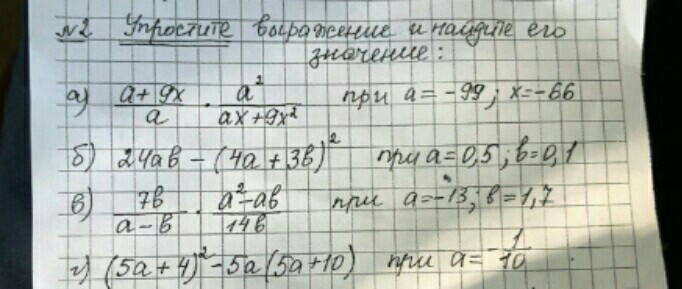 №2 Упростите выражение и найдите его
значение:
а) (a+9x)/a · a²/(ax+9x²) при a=-99; x=-66
б) 24ab-(4a+3b)² при a=0,5; b=0,1
в) 7b/(a-b) · (a²-ab)/14b при a=-13; b=1,7
г) (5a+4)²-5a(5a+10) при a=-1/10.